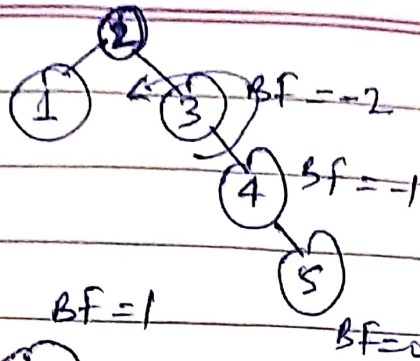 2
1
3 BF = -2
4 Bf = -1
5
BF = 1
BF =